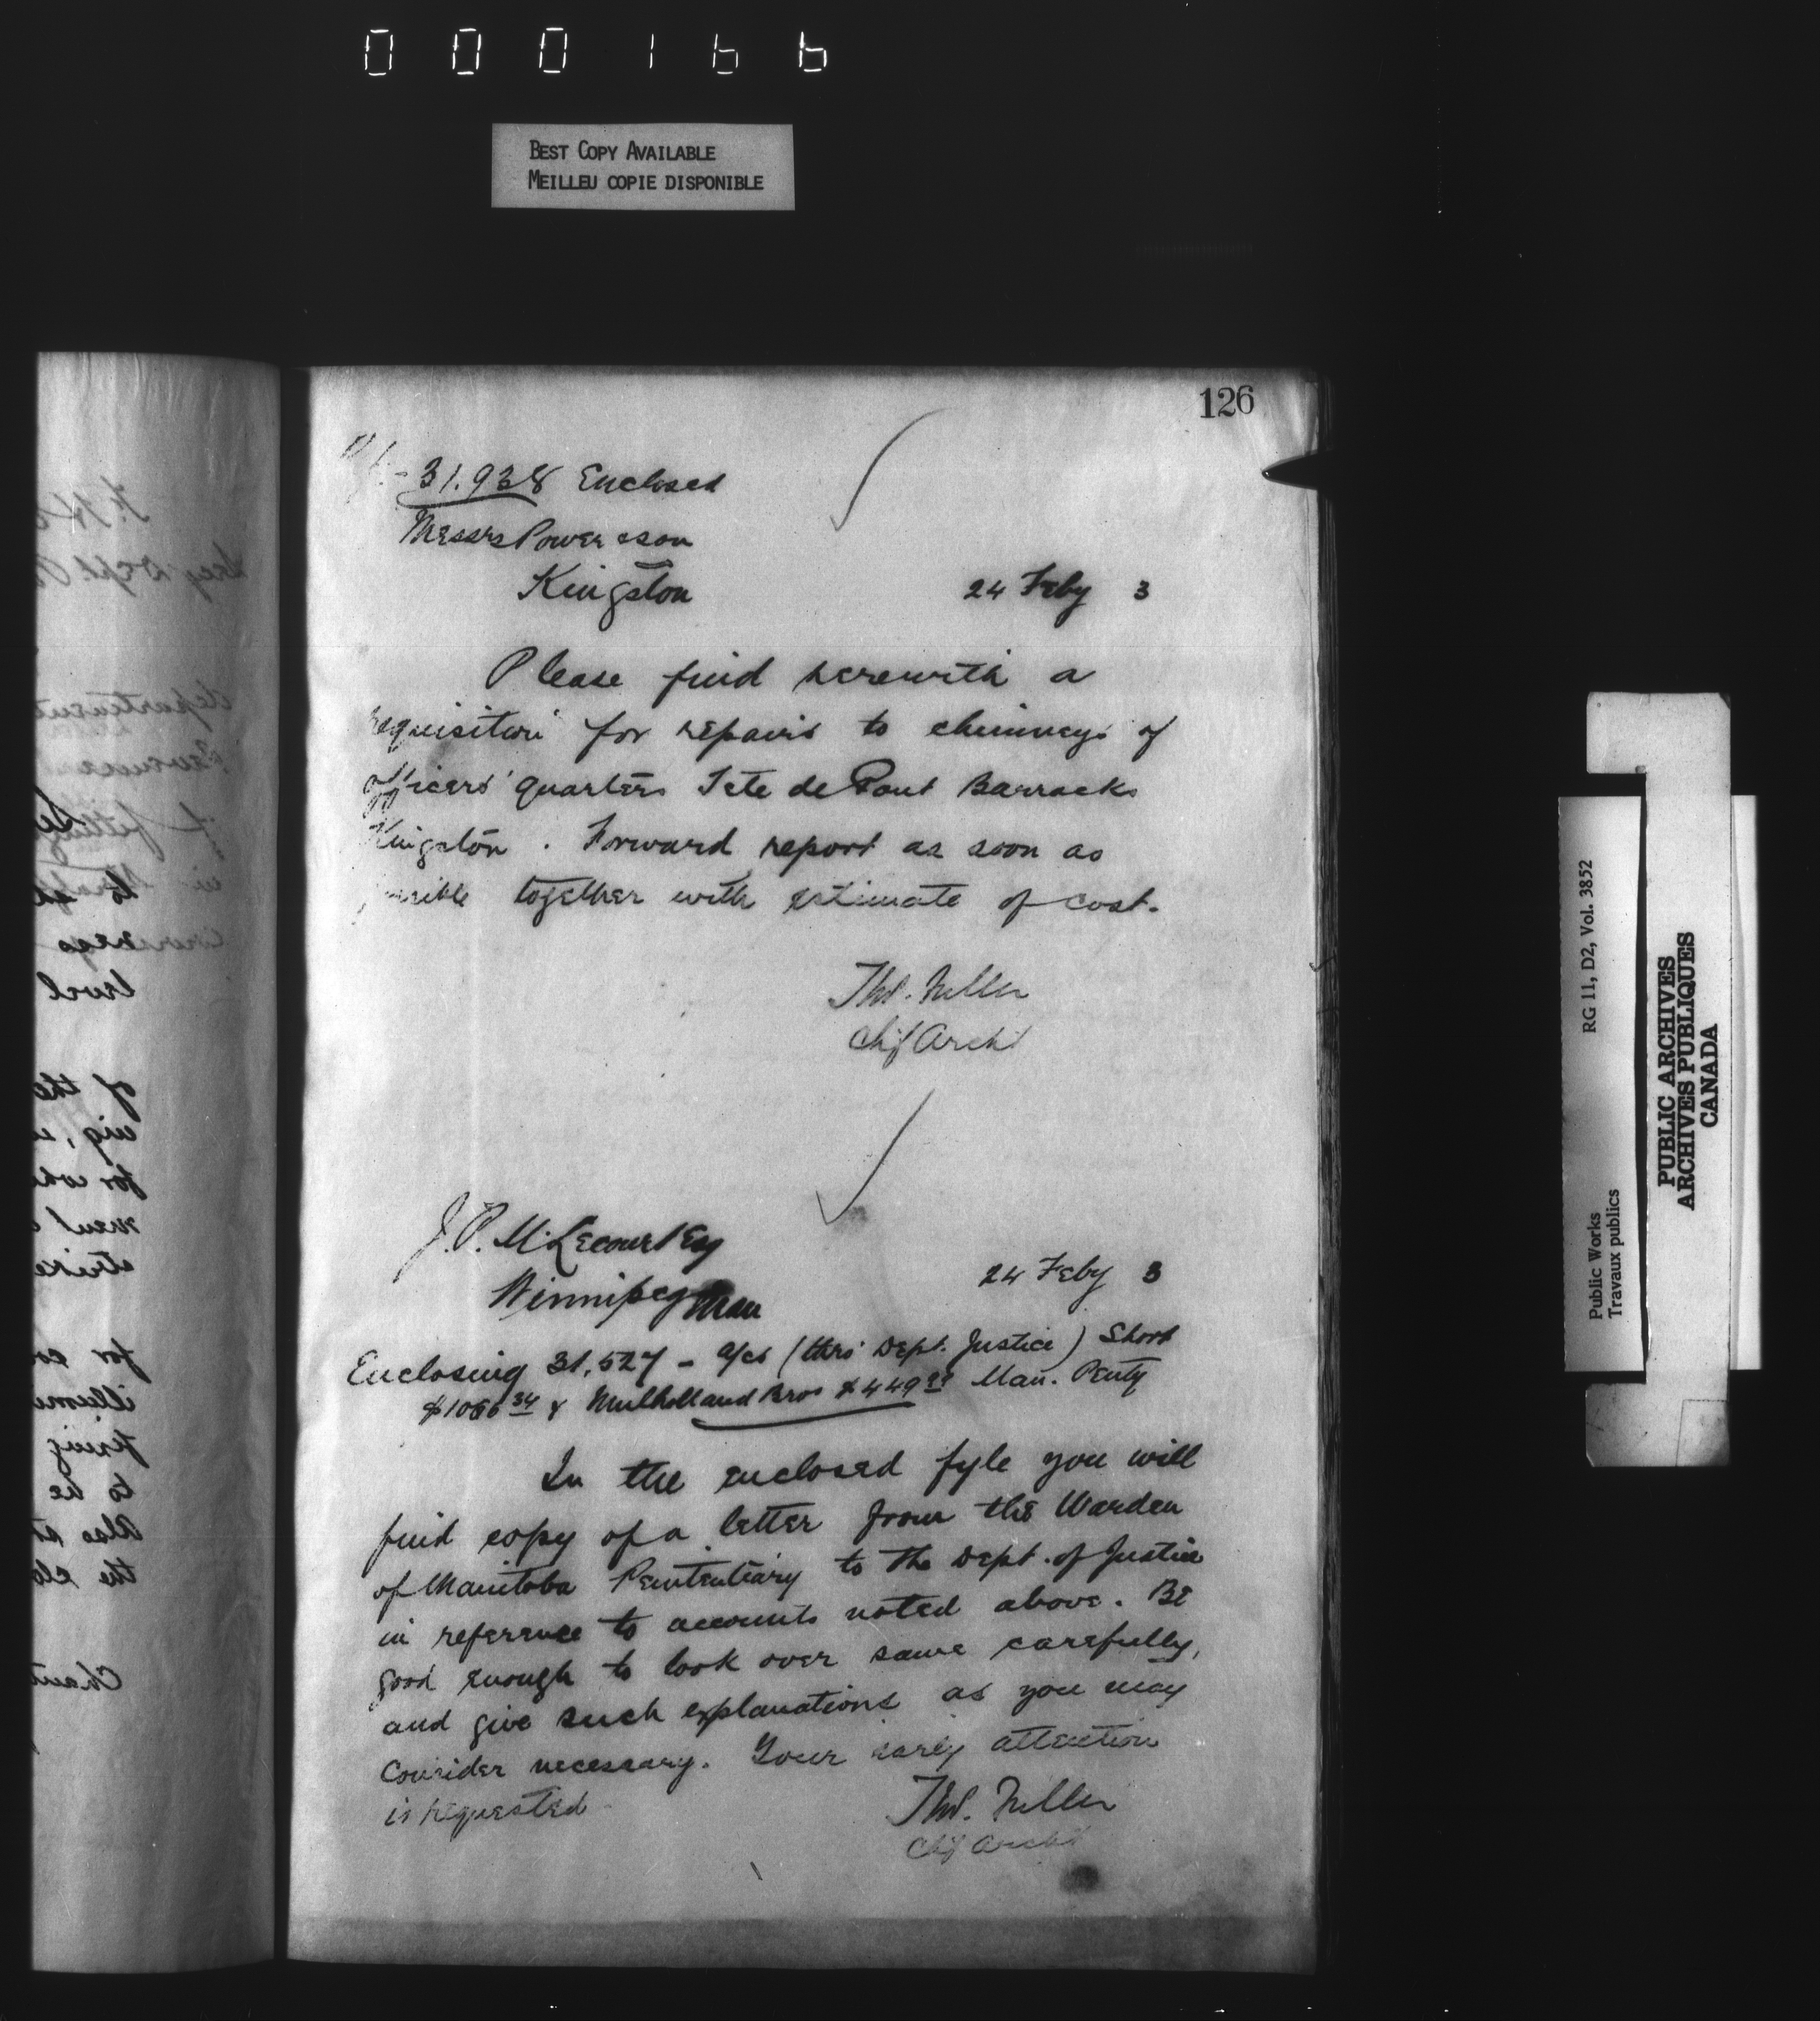 000166
BEST COPY AVAILABLE
MEILLEU COPIE DISPONIBLE
126
31.938 Enclosed
Messrs Power & Son
Kingston 24 Feby 3
Please find herewith a
requisition for repairs to chimneys of
officers' quarters Tete de Pont Barracks
Kingston. Forward report as soon as
possible together with estimate of cost.
Thos. Fuller
Chf Archt
J.P. M. Lecourt Esq
Winnipeg Man
24 Feby 3
Enclosing 31,527 - a/cs (thro' Dept. Justice) Short
& Mulholland Bros Man. Penty
In the enclosed fyle you will
find copy of a letter from the Warden
of Manitoba Penitentiary to the Dept. of Justice
in reference to accounts noted above. Be
good enough to look over same carefully,
and give such explanations as you may
consider necessary. Your early attention
is requested
Thos. Fuller
Chf Archt
RG 11, D2, Vol. 3852
Public Works
Travaux publics
PUBLIC ARCHIVES
ARCHIVES PUBLIQUES
CANADA